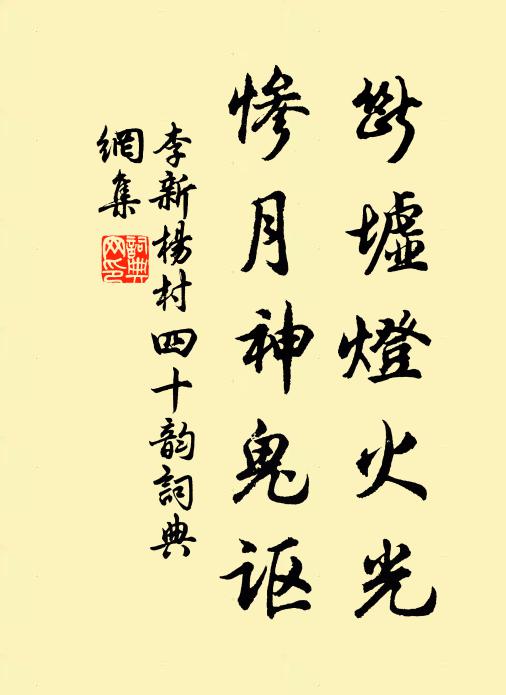 斷墟燈火光
慘月神鬼讴
李新楊村四十韵詞典
網集
詞典
网印